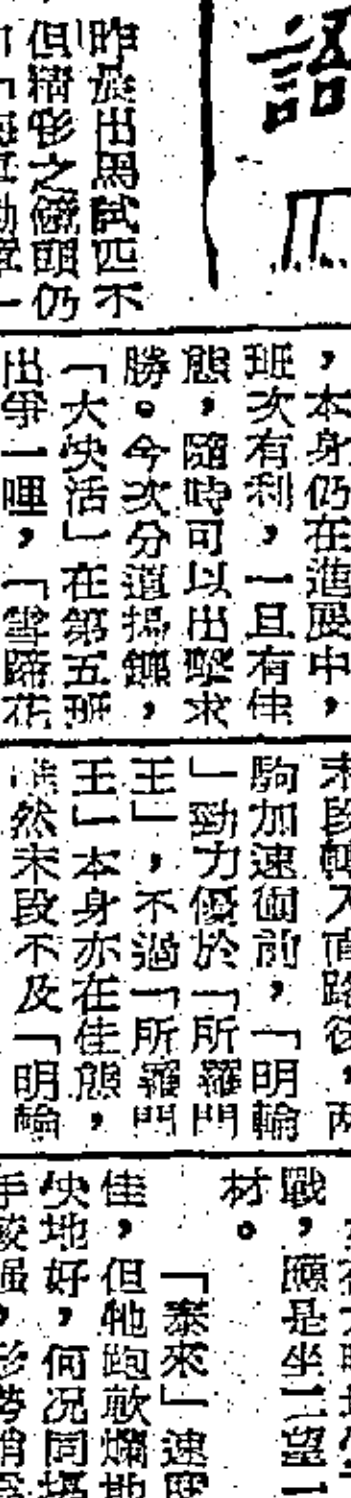 語
昨晨出馬試匹不
但精彩之鏡頭仍
，本身仍在進展中，
班次有利，一旦有佳
態，隨時可以出擊求
勝。今次分道揚鑣，
「大快活」在第五班
出爭一哩，「雪蹄花
末段轉入直路後，两
駒加速衝前，「明輪
」勁力優於「所羅門
王」，不過「所羅門
王」本身亦在佳態，
雖然末段不及「明輪
戰，願是坐二望一
材。
「泰來」速度
佳，但牠跑軟爛地
快地好，何況同場